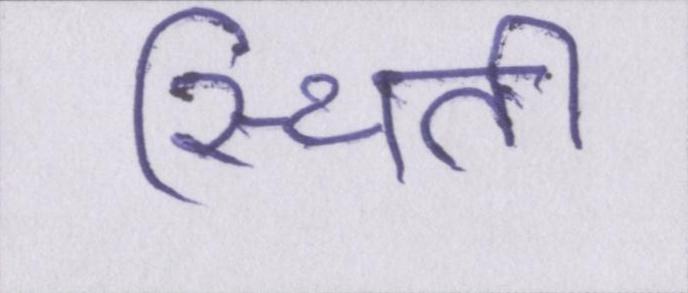 स्थिती